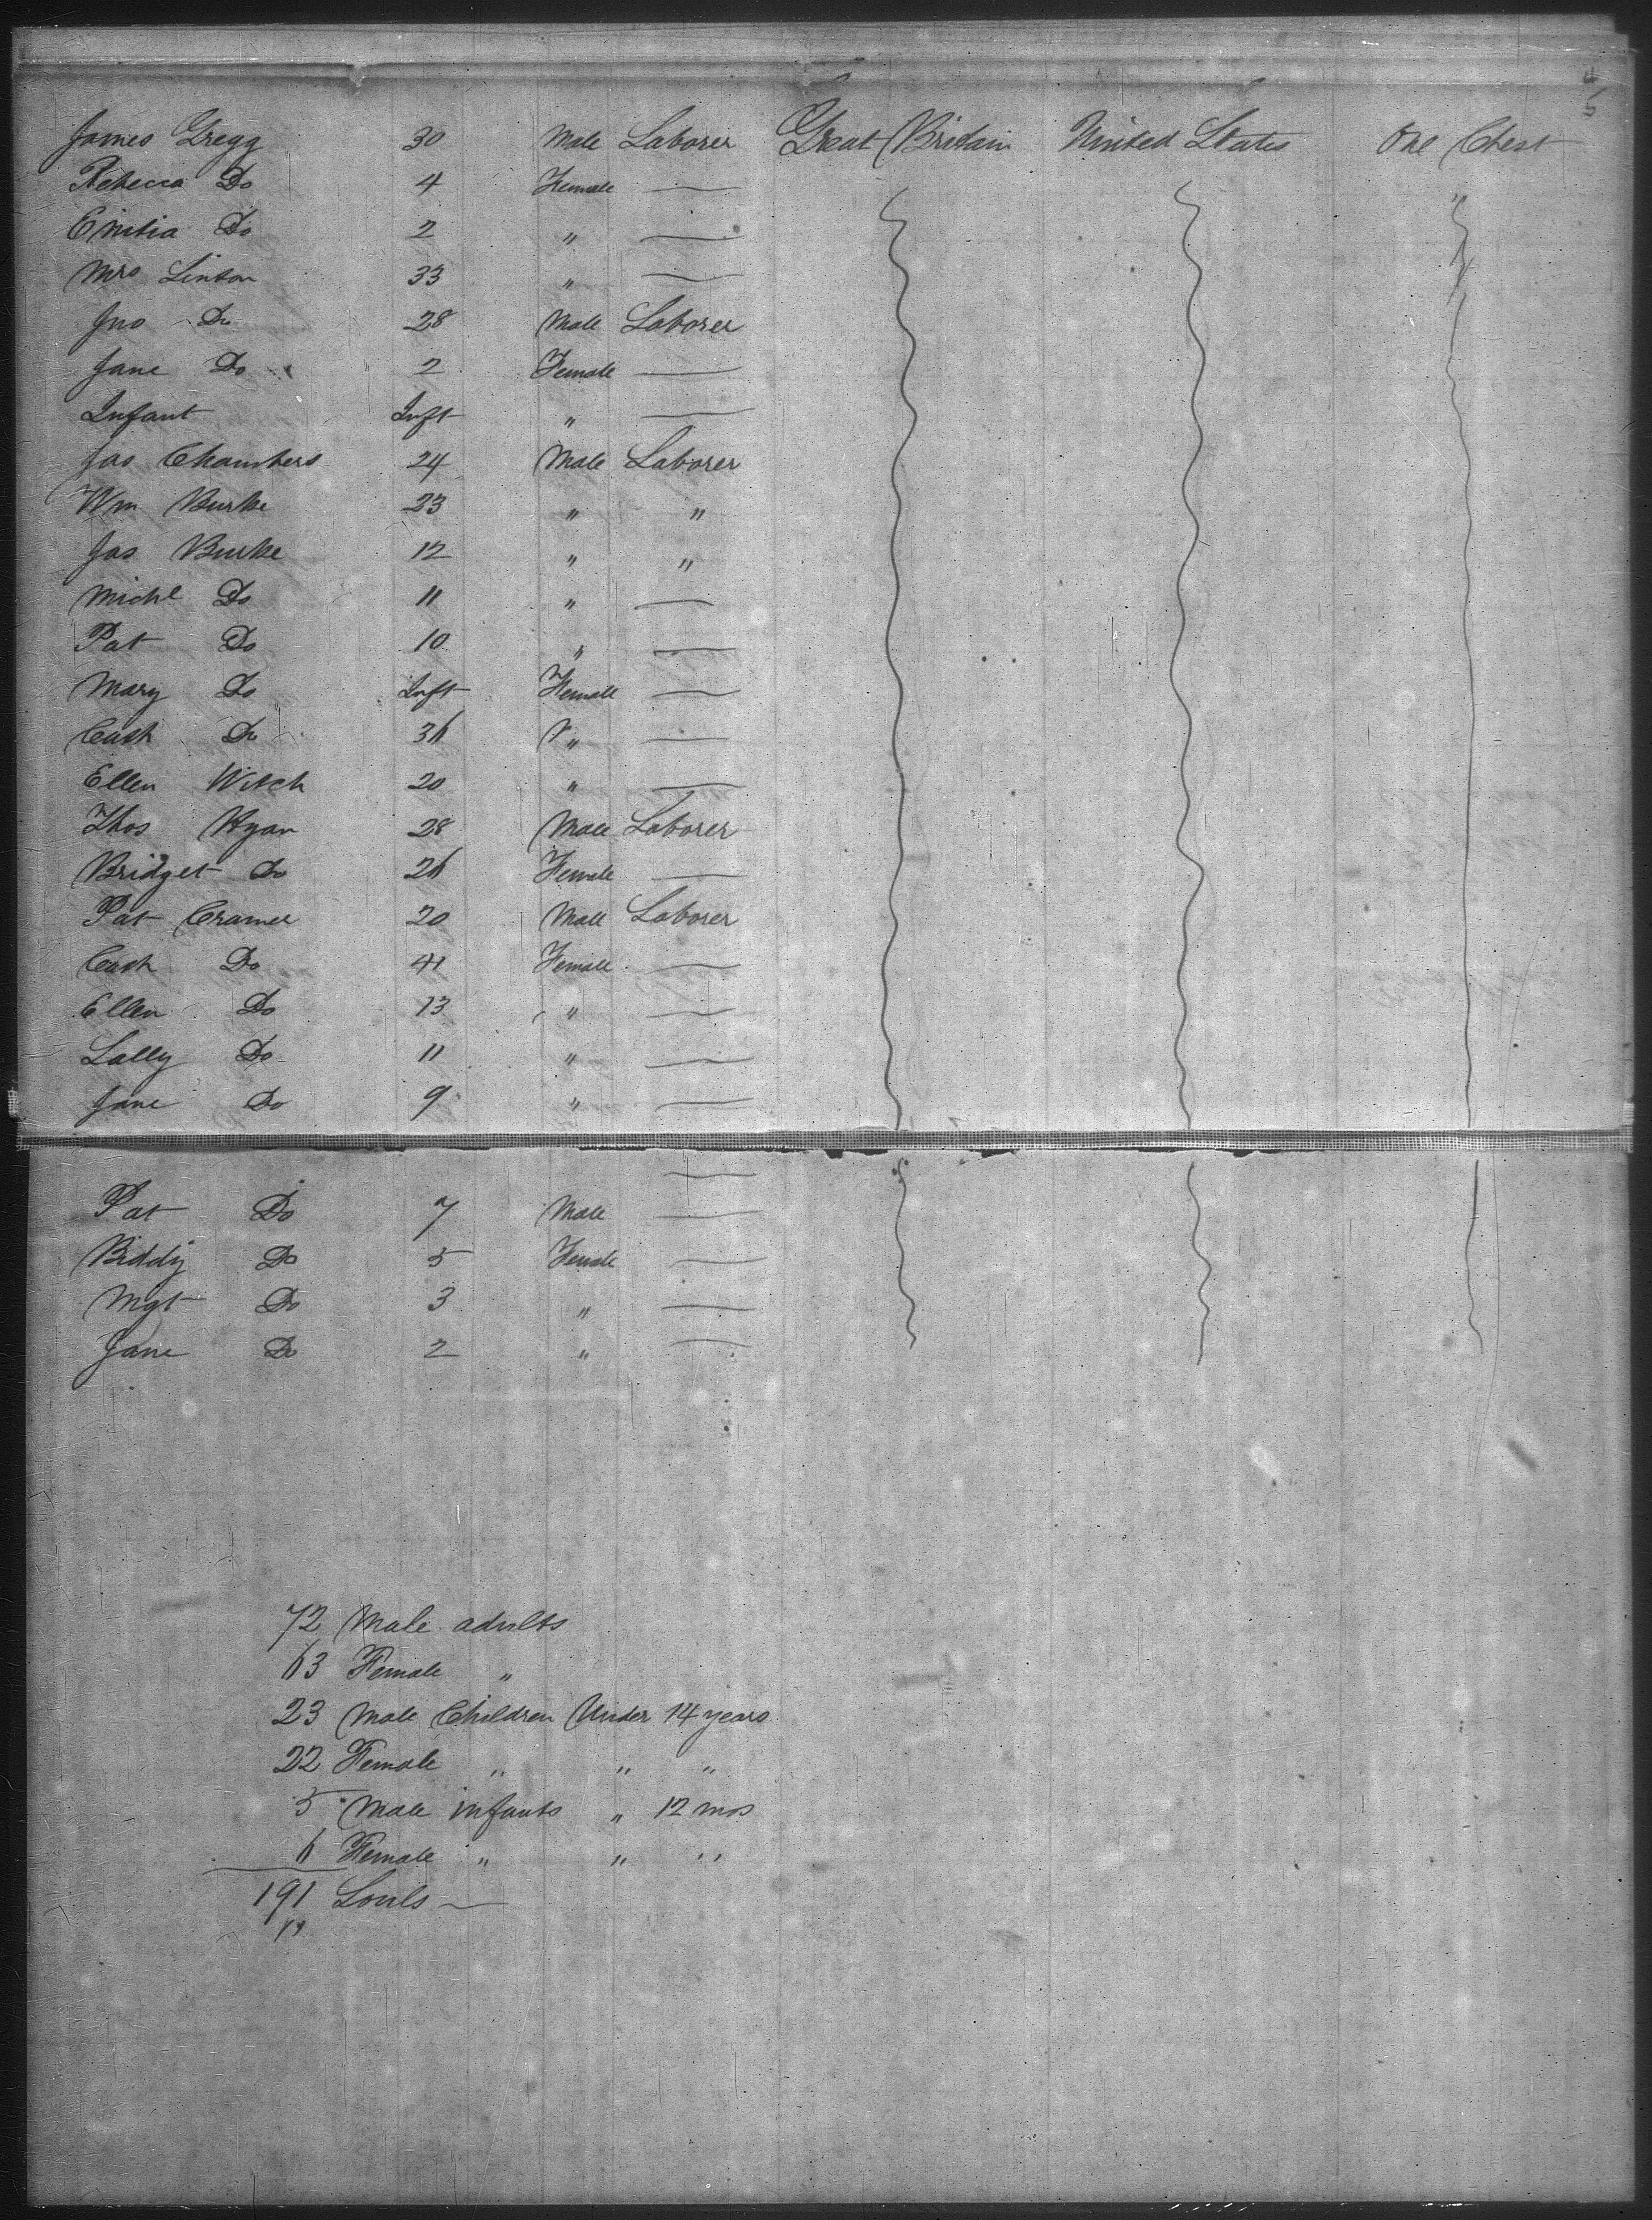 4
5
James Gregg 30 Male Laborer Great Britain United States One Chest
Rebecca Do 4 Female — "
Do 2 " —
Mrs Linton 33 " —
Jno Do 28 Male Laborer
Jane Do 2 Female —
Infant Inft " —
Jas Chambers 24 Male Laborer
Wm Burke 23 " "
Jas Burke 12 " "
Michl Do 11 " —
Pat Do 10 " —
Mary Do Inft Female —
Cath Do 36 " —
Ellen Witch 20 " —
Thos Hyan 28 Male Laborer
Bridget Do 26 Female —
Pat Cramer 20 Male Laborer
Cath Do 41 Female —
Ellen Do 13 " —
Sally Do 11 " —
Jane Do 9 " —
—
Pat Do 7 Male —
Biddy Do 5 Female —
Mgt Do 3 " —
Jane Do 2 " —
72 Male adults
63 Female "
23 Male Children Under 14 years
22 Female " " "
5 Male infants " 12 mos
6 Female " " "
191 Souls —